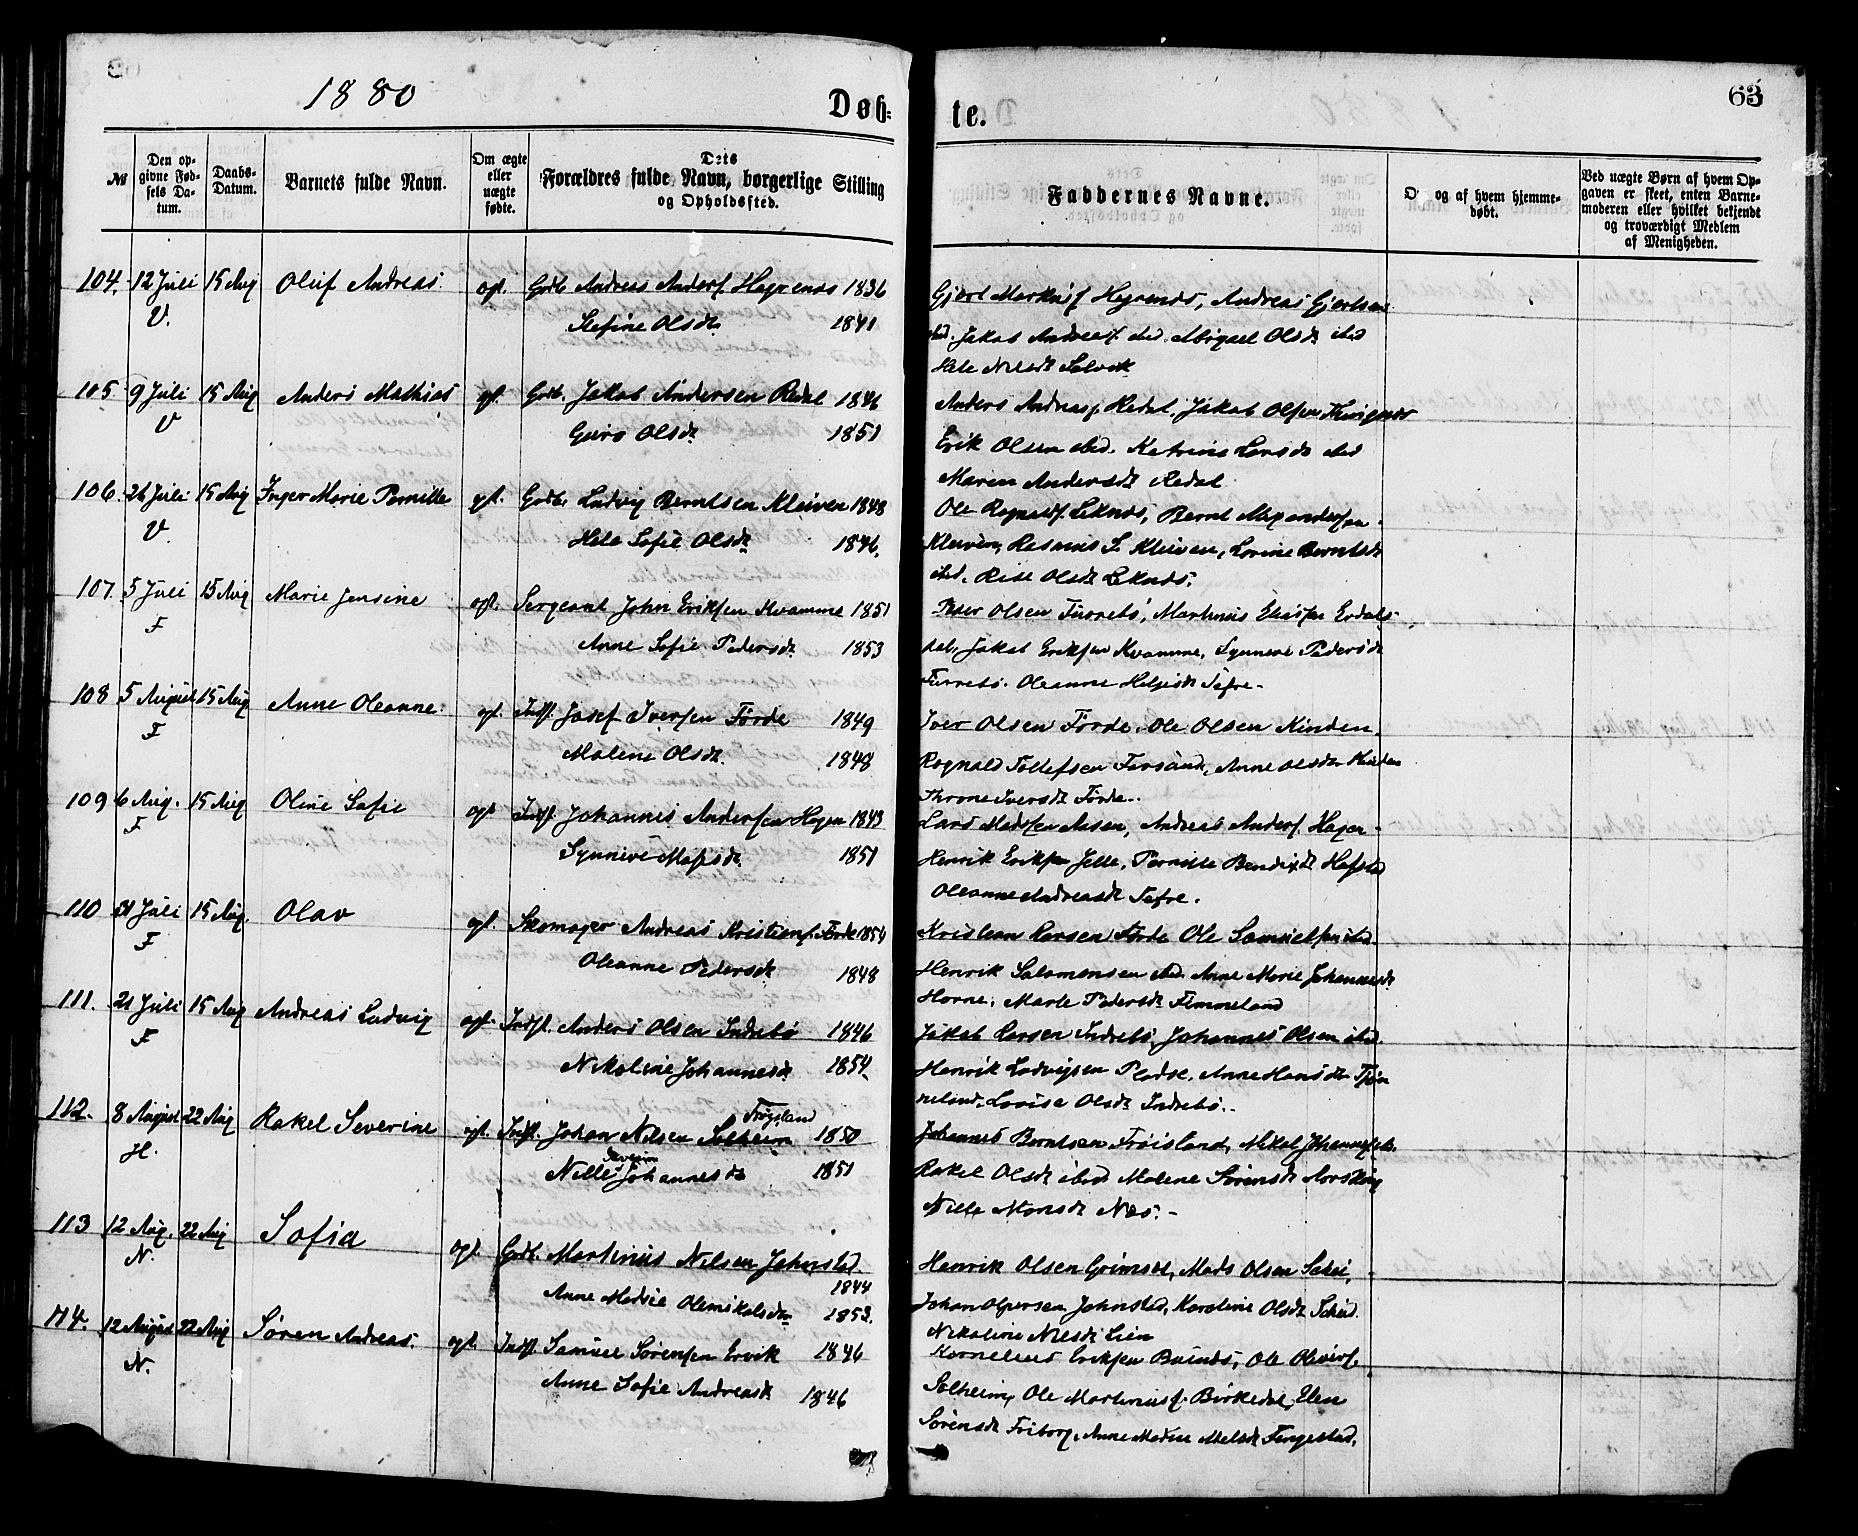 1880
63
Døb-
te.
№
Den op-
givne Fød-
sels Da-
tum.
Daabs-
Datum.
Barnets fulde Navn.
Om ægte
eller
uægte
fødte.
Dets
Forældres fulde Navn, borgerlige Stilling
og Opholdssted.
Faddernes Navne.
O og af hvem hjemme-
døbt.
Ved uægte Børn af hvem Op-
gaven er skeet, enten Barne-
moderen eller hvilket bekjendt
og troværdigt Medlem
af Menigheden.
104. 12 Juli 15 Aug Oluf Andreas. ægt. Grdb. Andreas Anders. Hagenæs 1836
V. Stefine Olsdt. 1841
Gjert Markus. Hagenæs, Andreas Gjertsen
ibd. Jakob Anders. ibd. Abigael Olsdt ibd
Nilsdt Solvik
105. 9 Juli 15 Aug Anders Mathias ægt. Grdb. Jakob Andersen Redal 1846
V Guro Olsdt. 1851
Anders Andreas. Redal, Jakob Olsen
Erik Olsen ibd. Katrine Larsdt ibd
Maren Andersdt Redal
106. 26 Juli 15 Aug Inger Marie Pernille ægt. Grdb. Ludvig Berntsen Kleiven 1848
V. Hele Sofie Olsdt 1846.
Ole Rognalds. Leknæs, Bernt Alexandersen
Kleiven, Rasmus S. Kleiven, Lovine Berntsdt
ibd. Olsdt Leknæs.
107. 5 Juli 15 Aug Marie Jensine ægt. Sergeant John Eriksen Kvamme 1851
F Anne Sofie Pedersdt. 1853
Peder Olsen Furrebø, Martinus Eliassen Erdals-
dal, Jakob Eriksen Kvamme, Synneve Pedersdt
Furrebø. Oleanne Helgesdt Tefre.
108 5 August 15 Aug. Anne Oleanne. ægt. Indst. Josef Iversen Førde 1849
F Malene Olsdt. 1848
Iver Olsen Førde. Ole Olsen Kinden.
Rognald Tollefsen Forsund, Anne Olsdt. Kinden
Throne Iversdt Førde.
109 6 Aug. 15 Aug Oline Sofie ægt Indst. Johannes Andersen Hagen 1843
F Synneve Madsdt. 1851
Lars Madsen Aasen, Andreas Anders. Hagen
Henrik Eriksen Jelle, Pernille Bendixdt Hafstad
Oleanne Andreasdt Tefre.
110 31 Juli 15 Aug. Olav ægt. Skomager Andreas Kristians. Førde 1854
F Oleanne Pedersdt 1848
Kristian Larsen Førde Ole Samuelsen ibd.
Henrik Salomonsen ibd. Anne Marie Johannesdt
Horne. Marte Pedersdt Timmeland
111. 21 Juli 15 Aug Andreas Ludvig ægt. Indst. Anders Olsen Indrebø 1846
F Nikoline Johannesdt. 1854.
Jakob Larsen Indrebø, Johannes Olsen ibd.
Henrik Ludvigsen Pladse, Anne Hansdt Tjøn
neland. Lovise Olsdt Indrebø.
112. 8 August 22 Aug Rakel Severine ægt. Indst. Johan Nilsen Solheim Frøysland 1850
H. Nille Severine Johannesdt 1851
Johannes Berntsen Frøisland, Mikal Johannes. ibd.
Rakel Olsdt ibid Malene Sørensdt Aarskog
Nille Monsdt Næs.
113 12 Aug. 22 Aug Sofia ægt. Grdb. Martinus Nilsen Johnstad.
N. 1844
Anne Madsie Olemikalsdt 1853.
Henrik Olsen Grimset, Mads Olsen Skei,
Johan Olpersen Johnstad, Karoline Olsdt Skei
Nikoline Nilsdt Lien
114. 12 August 22 Aug Søren Andreas. ægt. Indst. Samuel Sørensen Ervik 1846
N. Anne Sofie Andreasdt 1846
Kornelius Eriksen Buenæs, Ole Olivers.
Solheim, Ole Martinus. Birkedal, Elen
Sørensdt Friborg, Anne Madsie Nilsdt Tingstad.